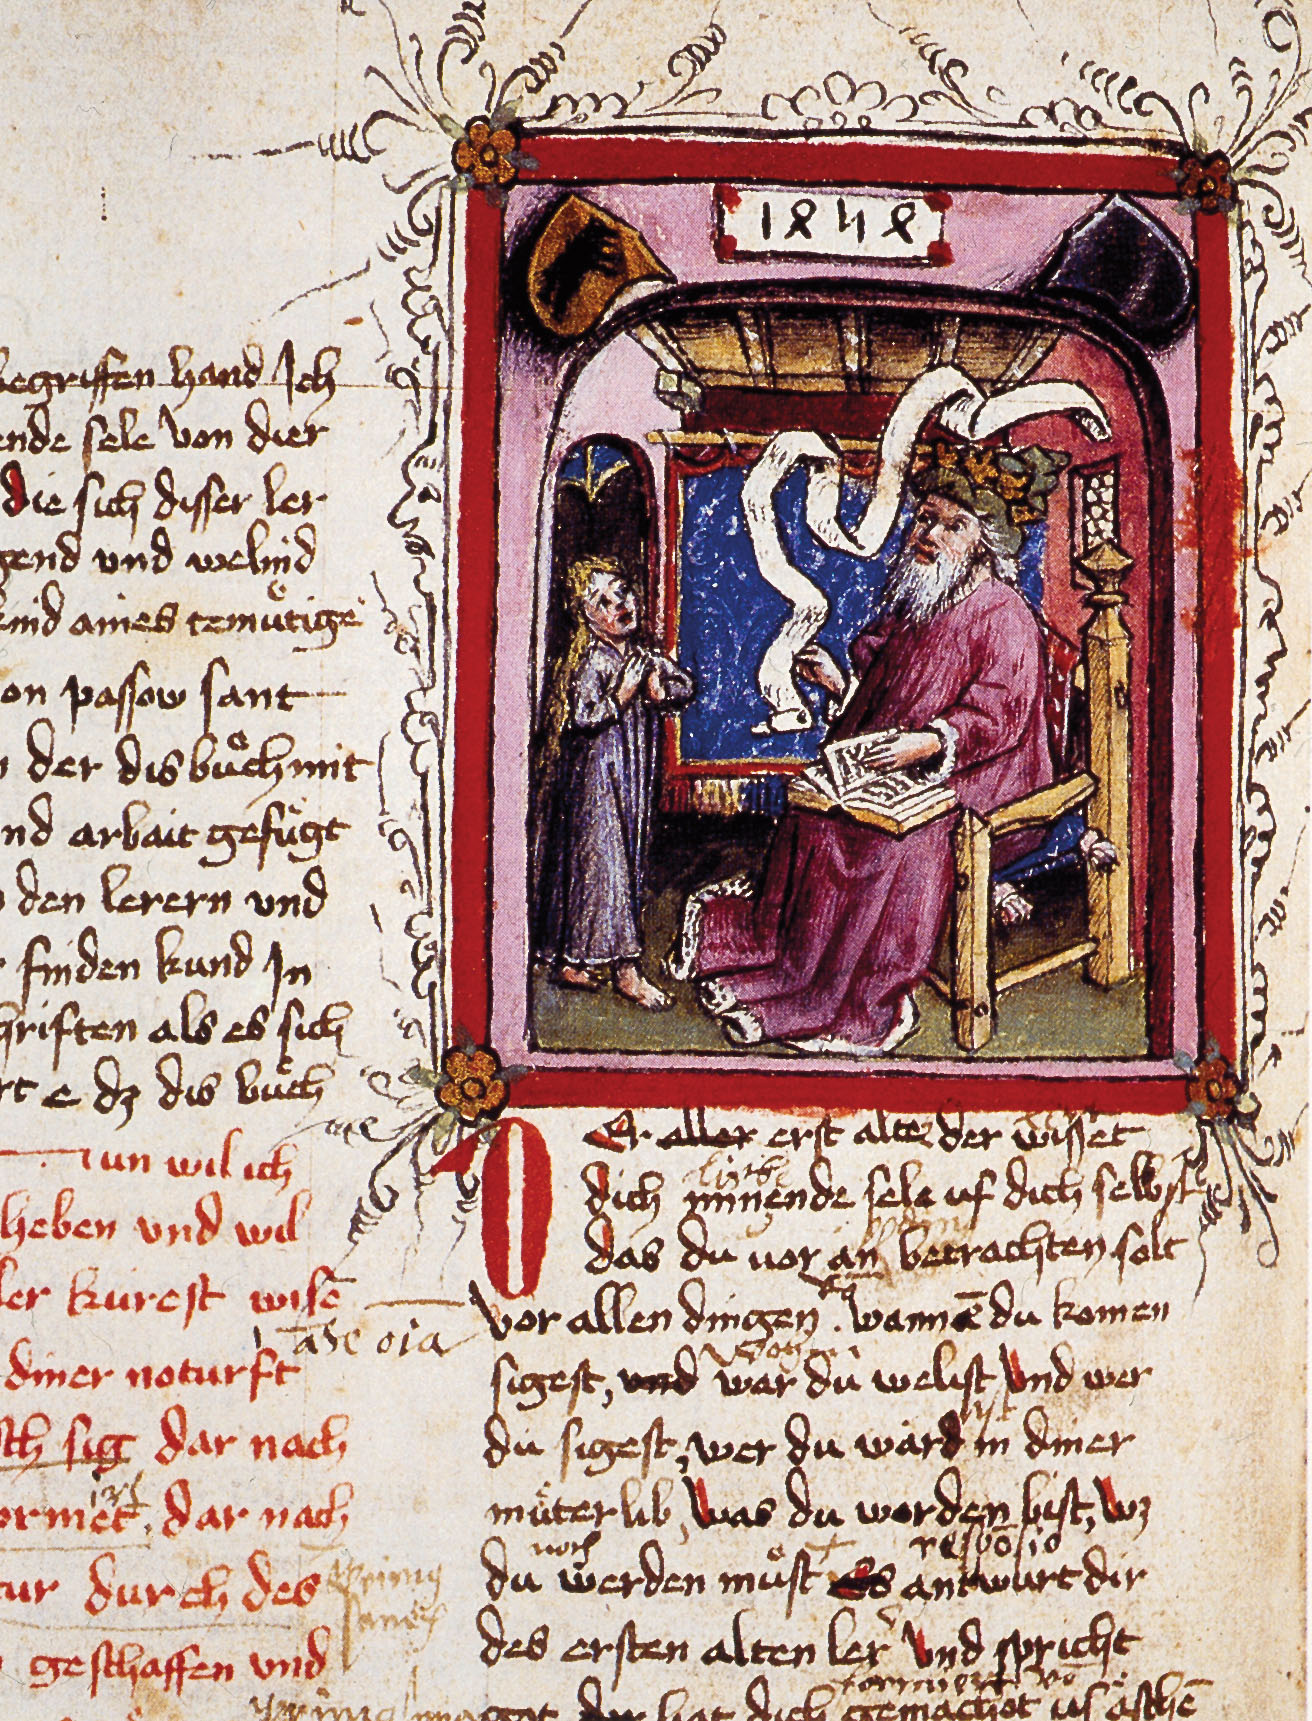 1848
begriffen hand Ich
ende sele von dier
die sich disser ler
gend vnd welind
kind aines temütigē
on passow sant
der dis bůch mit
nd arbait gefügt
den lerern vnd
finden kund In
hriften als es sich
rt e dz dis bůch
un wil ich
heben vnd wil
ler kürest wisē
diner noturft
ch sig dar nach
ormet, dar nach
tur durch des
geschaffen vnd
Er aller erst alte der wisset
dich minnende sele uf dich selbst
das du vor an betrachten solt
vor allen dingen wannē du komen
sigest, vnd war du welist vnd wer
du sigest, wer du ward in diner
můter lib, was du worden bist, wz
noch
respōsio
du werden můst Es antwurt dir
des ersten alten ler vnd spricht
got der hat dich gemachot us äschē